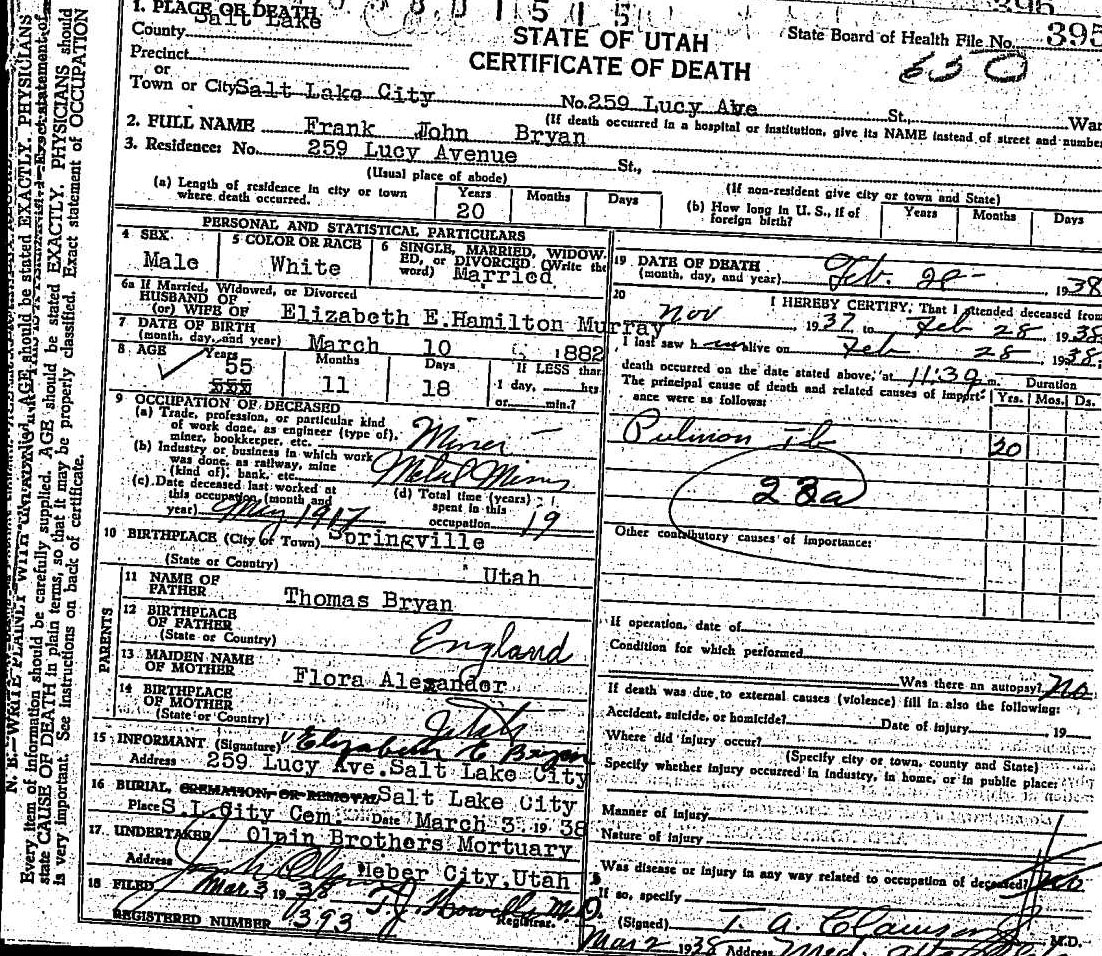 1. PLACE OF DEATH
County Salt Lake
Precinct
or
Town or City Salt Lake City No. 259 Lucy Ave St., War
STATE OF UTAH
CERTIFICATE OF DEATH
State Board of Health File No. 395
630
(If death occurred in a hospital or institution, give its NAME instead of street and number
2. FULL NAME Frank John Bryan
3. Residence: No. 259 Lucy Avenue St.,
(Usual place of abode)
(If non-resident give city or town and State)
(a) Length of residence in city or town where death occurred.
Years 20 Months Days
(b) How long in U. S., if of foreign birth?
Years Months Days
PERSONAL AND STATISTICAL PARTICULARS
4 SEX Male
5 COLOR OR RACE White
6 SINGLE, MARRIED, WIDOWED, or DIVORCED (Write the word) Married
6a If Married, Widowed, or Divorced
HUSBAND OF
(or) WIFE OF Elizabeth E.Hamilton Murray
7 DATE OF BIRTH
(month, day, and year) March 10 1882
8 AGE Years 55 Months 11 Days 18
If LESS than
1 day, hrs.
or min.?
9 OCCUPATION OF DECEASED
(a) Trade, profession, or particular kind
of work done, as engineer (type of),
miner, bookkeeper, etc. Miner
(b) Industry or business in which work
was done, as railway, mine
(kind of), bank, etc. Metal Mines
(c) Date deceased last worked at
this occupation (month and
year) May 1917
(d) Total time (years)
spent in this
occupation 19
10 BIRTHPLACE (City or Town) Springville
(State or Country) Utah
PARENTS
11 NAME OF
FATHER Thomas Bryan
12 BIRTHPLACE
OF FATHER
(State or Country) England
13 MAIDEN NAME
OF MOTHER Flora Alexander
14 BIRTHPLACE
OF MOTHER
(State or Country) Utah
15 INFORMANT (Signature) Elizabeth E Bryan
Address 259 Lucy Ave.Salt Lake City
16 BURIAL, CREMATION, OR REMOVAL Salt Lake City
Place S.L.City Cem. Date March 3 1938
17 UNDERTAKER Olpin Brothers Mortuary
Address Heber City,Utah
18 FILED Mar 3 1938 T. J. Howells M.D.
Registrar.
REGISTERED NUMBER 393
19 DATE OF DEATH
(month, day, and year) Feb. 28 1938
20 I HEREBY CERTIFY, That I attended deceased from
Nov 1937 to Feb 28 1938
I last saw him alive on Feb 28 1938
death occurred on the date stated above, at 11:30 m.
The principal cause of death and related causes of importance were as follows:
Duration
Yrs. Mos. Ds.
Pulmon Tb 20
23a
Other contributory causes of importance:
If operation, date of
Condition for which performed
Was there an autopsy? No
If death was due to external causes (violence) fill in also the following:
Accident, suicide, or homicide? Date of injury , 19
Where did injury occur?
(Specify city or town, county and State)
Specify whether injury occurred in industry, in home, or in public place:
Manner of injury
Nature of injury
Was disease or injury in any way related to occupation of deceased? No
If so, specify
(Signed) T. A. Clawson M.D.
Mar 2 1938 Address Med.
Every item of information should be carefully supplied. AGE should be stated EXACTLY. PHYSICIANS should
state CAUSE OF DEATH in plain terms, so that it may be properly classified. Exact statement of OCCUPATION
is very important. See instructions on back of certificate.